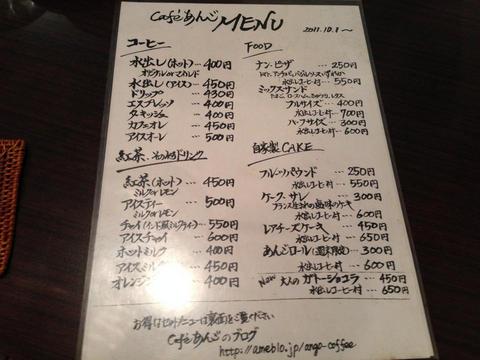 Caféあんご MENU
2011.10.1～
コーヒー
水出し(ホット) … 400円
オリジナル or マイルド
水出し(アイス) … 450円
ドリップ … 430円
エスプレッソ … 400円
400円
カフェオレ … 450円
アイスオーレ … 500円
紅茶、その他ドリンク
紅茶(ホット) … 450円
ミルク or レモン
アイスティー … 500円
ミルク or レモン
チャイ … 550円
アイスチャイ … 600円
ホットミルク … 400円
アイスミルク
オレンジ
FOOD
ナン・ピザ … 250円
水出しコーヒー付 … 550円
ミックスサンド
たまご、ロースハム、きゅうり、レタス
フルサイズ … 400円
水出しコーヒー付 … 700円
ハーフサイズ … 300円
水出しコーヒー付 … 600円
自家製CAKE
フルーツパウンド … 250円
水出しコーヒー付 … 550円
ケーク・サレ … 300円
フランス生まれの塩味のケーキ
水出しコーヒー付 … 600円
レアチーズケーキ … 450円
水出しコーヒー付 … 650円
あんごロール(週末限定) … 300円
水出しコーヒー付 … 600円
New 大人のガトーショコラ … 450円
水出しコーヒー付 … 650円
お得なセットメニューは裏面をご覧ください
Caféあんごのブログ
http://ameblo.jp/ango-coffee